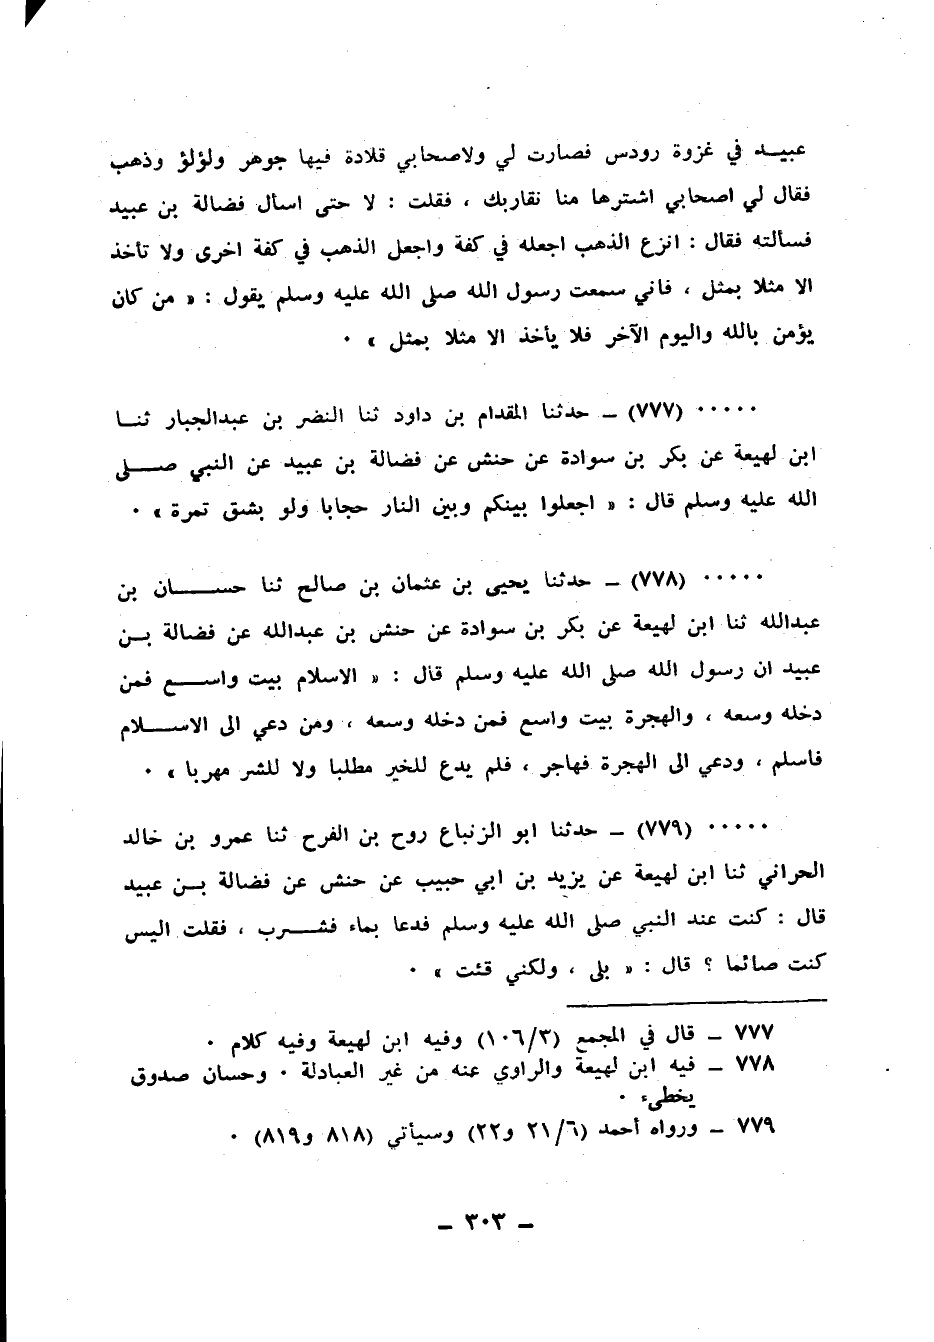 عبيـــد في غزوة رودس فصارت لي ولاصحابي قلادة فيها جوهر ولؤلؤ وذهب
فقال لي اصحابي اشترها منا نقاربك ، فقلت : لا حتى اسأل فضالة بن عبيد
فسألته فقال : انزع الذهب اجعله في كفة واجعل الذهب في كفة اخرى ولا تأخذ
الا مثلا بمثل ، فاني سمعت رسول الله صلى الله عليه وسلم يقول : « من كان
يؤمن بالله واليوم الآخر فلا يأخذ الا مثلا بمثل » ٠
٠٠٠٠٠ (٧٧٧) ــ حدثنا المقدام بن داود ثنا النضر بن عبدالجبار ثنــا
ابن لهيعة عن بكر بن سوادة عن حنش عن فضالة بن عبيد عن النبي صـــلى
الله عليه وسلم قال : « اجعلوا بينكم وبين النار حجابا ولو بشق تمرة » ٠
٠٠٠٠٠ (٧٧٨) ــ حدثنا يحيى بن عثمان بن صالح ثنا حســـــان بن
عبدالله ثنا ابن لهيعة عن بكر بن سوادة عن حنش بن عبدالله عن فضالة بــن
عبيد ان رسول الله صلى الله عليه وسلم قال : « الاسلام بيت واســـع فمن
دخله وسعه ، والهجرة بيت واسع فمن دخله وسعه ، ومن دعي الى الاســـلام
فاسلم ، ودعي الى الهجرة فهاجر ، فلم يدع للخير مطلبا ولا للشر مهربا » ٠
٠٠٠٠٠ (٧٧٩) ــ حدثنا ابو الزنباع روح بن الفرح ثنا عمرو بن خالد
الحراني ثنا ابن لهيعة عن يزيد بن ابي حبيب عن حنش عن فضالة بــن عبيد
قال : كنت عند النبي صلى الله عليه وسلم فدعا بماء فشـــرب ، فقلت اليس
كنت صائما ؟ قال : « بلى ، ولكني قئت » ٠
٧٧٧ ــ قال في المجمع (١٠٦/٣) وفيه ابن لهيعة وفيه كلام ٠
٧٧٨ ــ فيه ابن لهيعة والراوي عنه من غير العبادلة ٠ وحسان صدوق
يخطىء ٠
٧٧٩ ــ ورواه أحمد (٢١/٦ و٢٢) وسيأتي (٨١٨ و٨١٩) ٠
ــ ٣٠٣ ــ